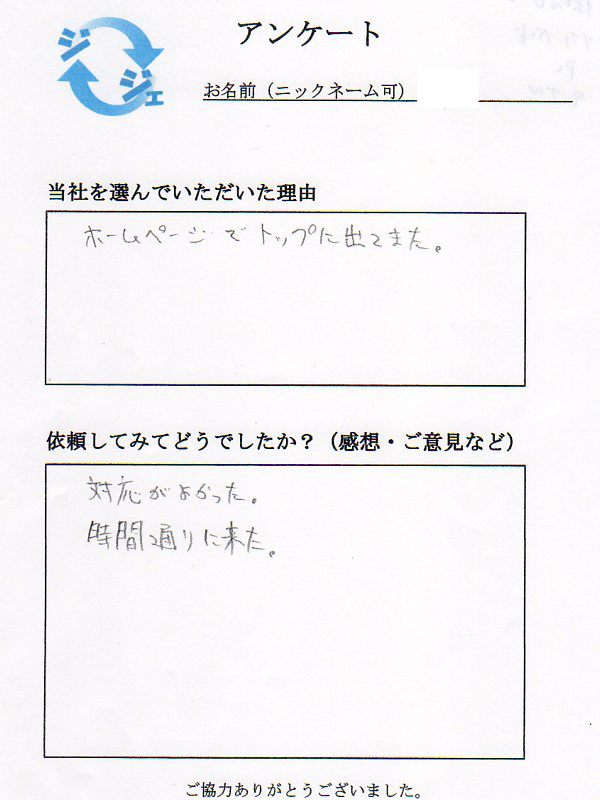 アンケート
ジ
ジェ
お名前（ニックネーム可）
当社を選んでいただいた理由
ホームページでトップに出てまた。
依頼してみてどうでしたか？（感想・ご意見など）
対応がよかった。
時間通りに来た。
ご協力ありがとうございました。